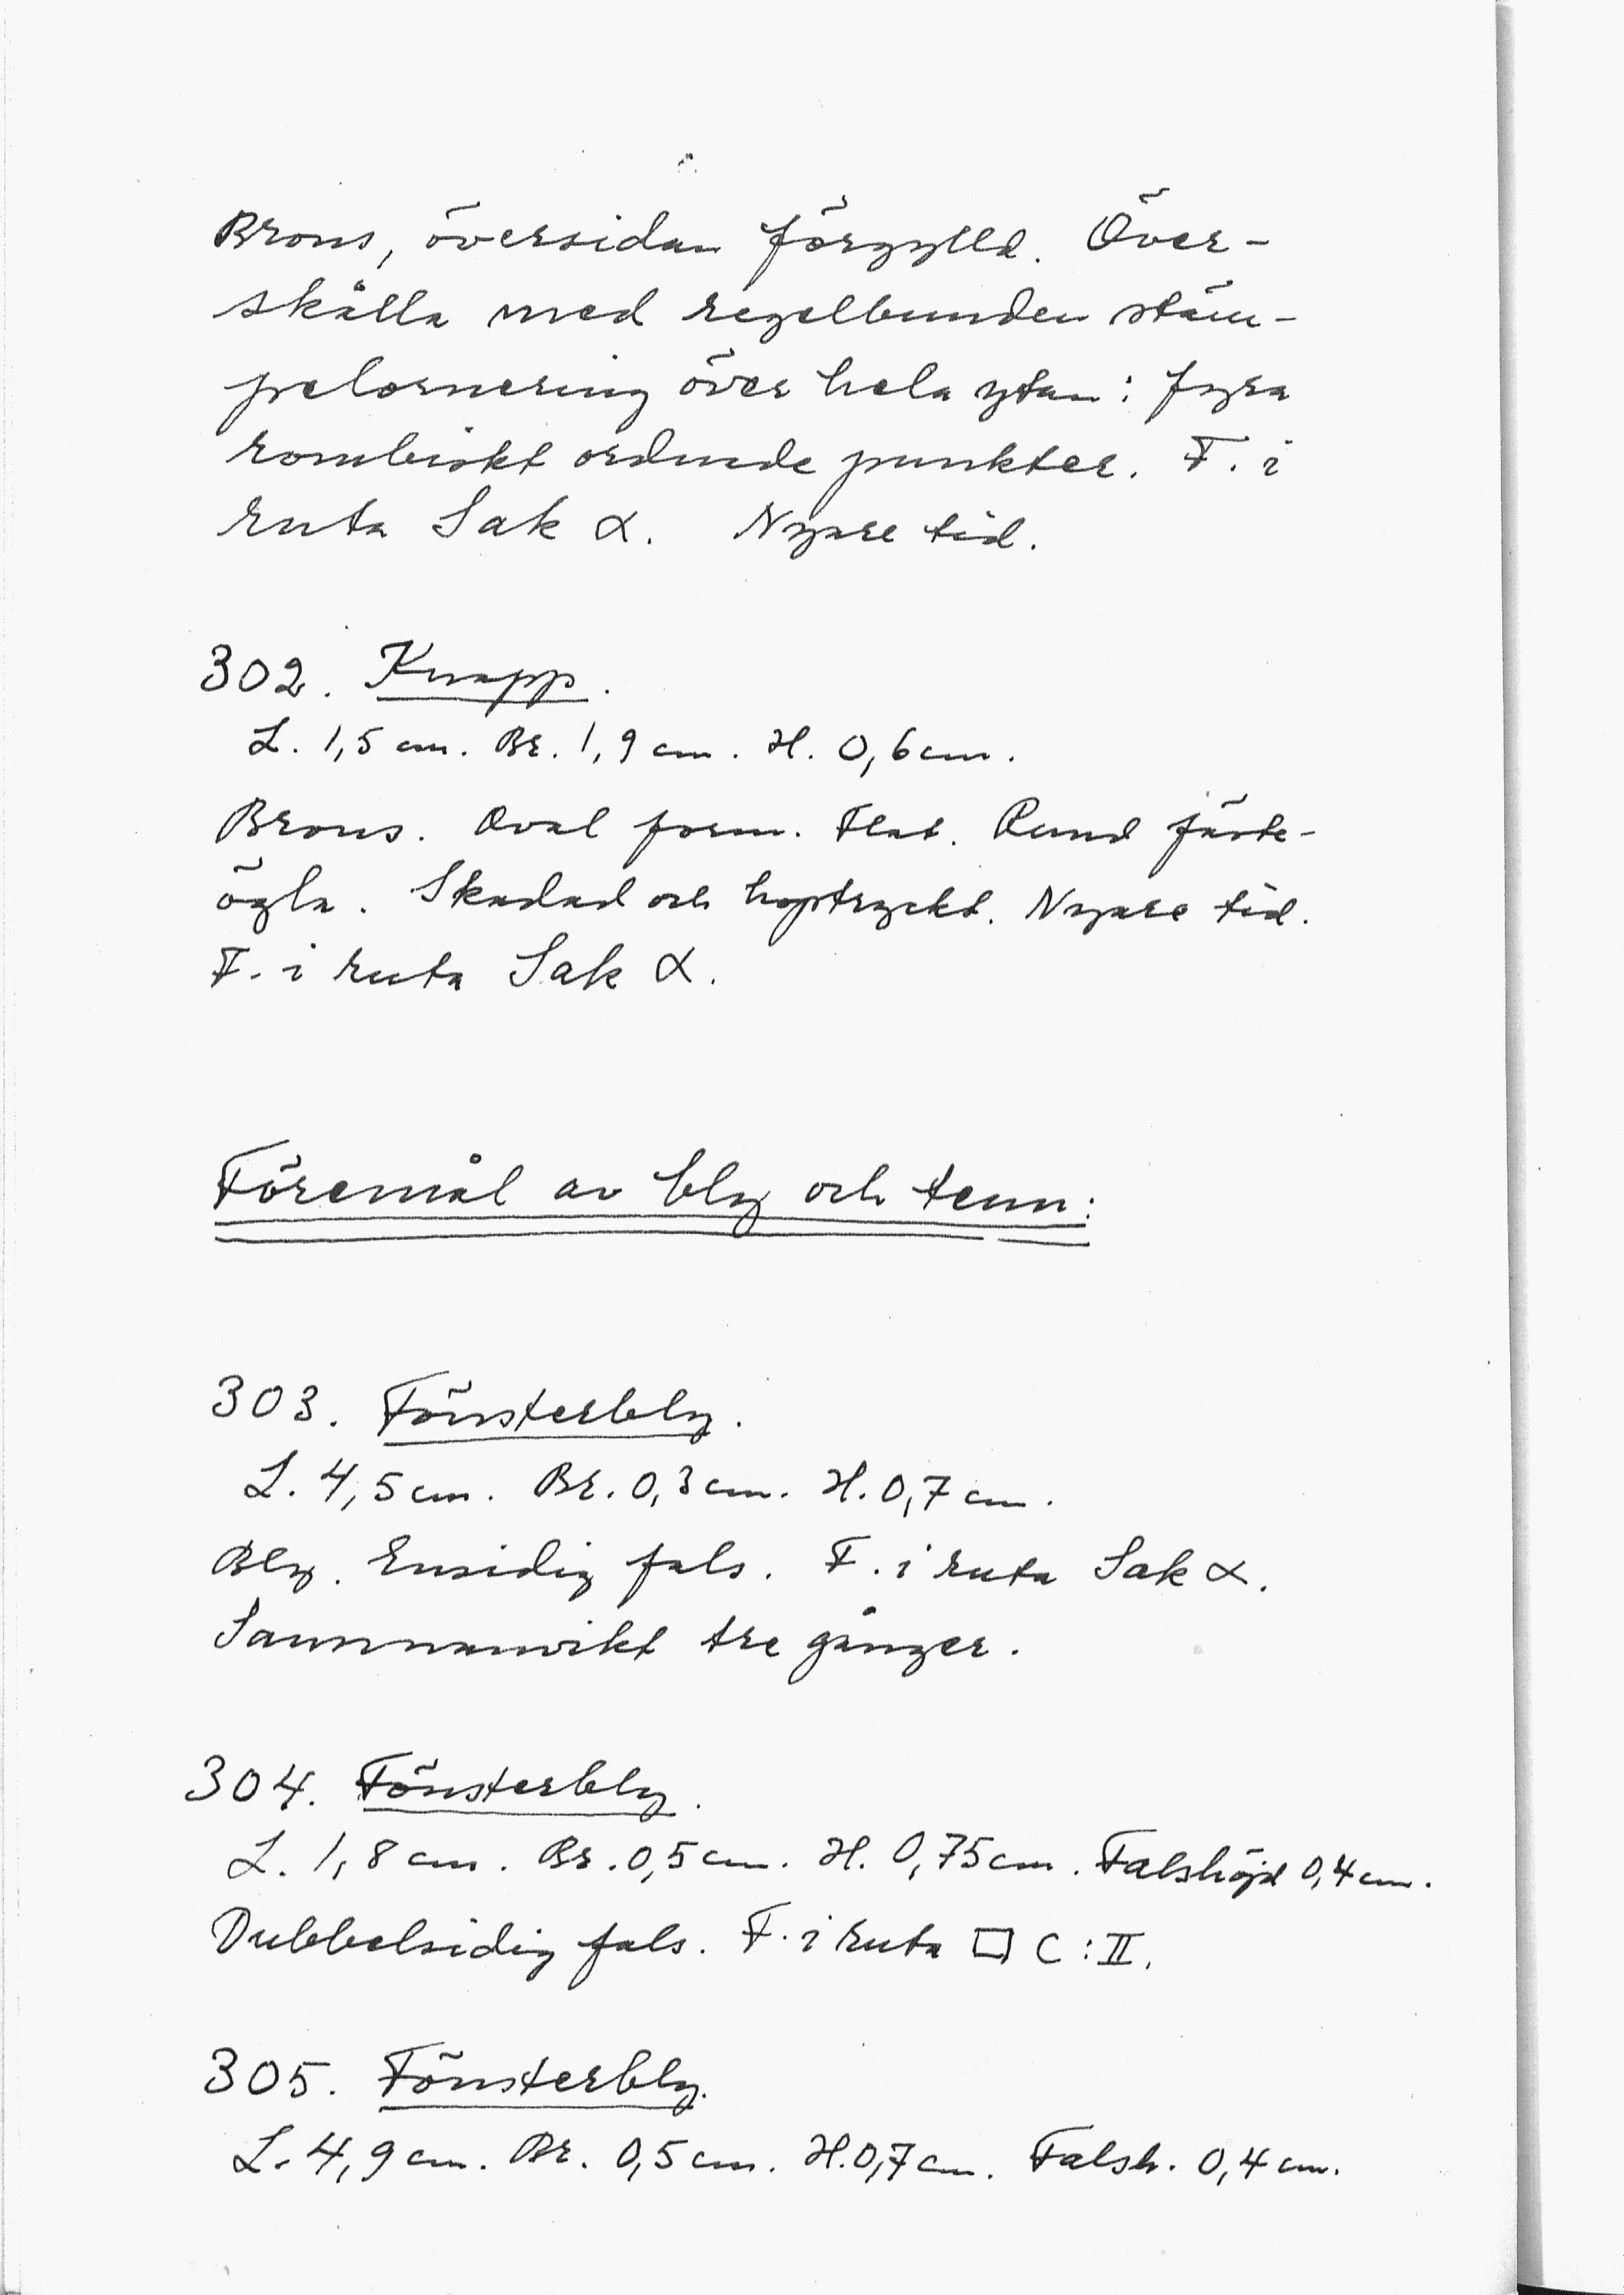 Brons, översidan förgylld. Över-
skålla med regelbunden stäm-
pelornering över hela ytan: fyra
rombiskt ordnade punkter. F. i
ruta Sak α. Nyare tid.
302. Knapp.
L. 1,5 cm. Br. 1,9 cm. H. 0,6 cm.
Brons. Oval form. Flat. Rund fäste-
ögla. Skadad och hoptryckt. Nyare tid.
F. i ruta Sak α.
Föremål av bly och tenn:
303. Fönsterbly.
L. 4,5 cm. Br. 0,3 cm. H. 0,7 cm.
Bly. Ensidig fals. F. i ruta Sak α.
Sammanvikt tre gånger.
304. Fönsterbly.
L. 1,8 cm. Br. 0,5 cm. H. 0,75 cm. Falshöjd 0,4 cm.
Dubbelsidig fals. F. i ruta □ C:II.
305. Fönsterbly.
L. 4,9 cm. Br. 0,5 cm. H. 0,7 cm. Falsh. 0,4 cm.